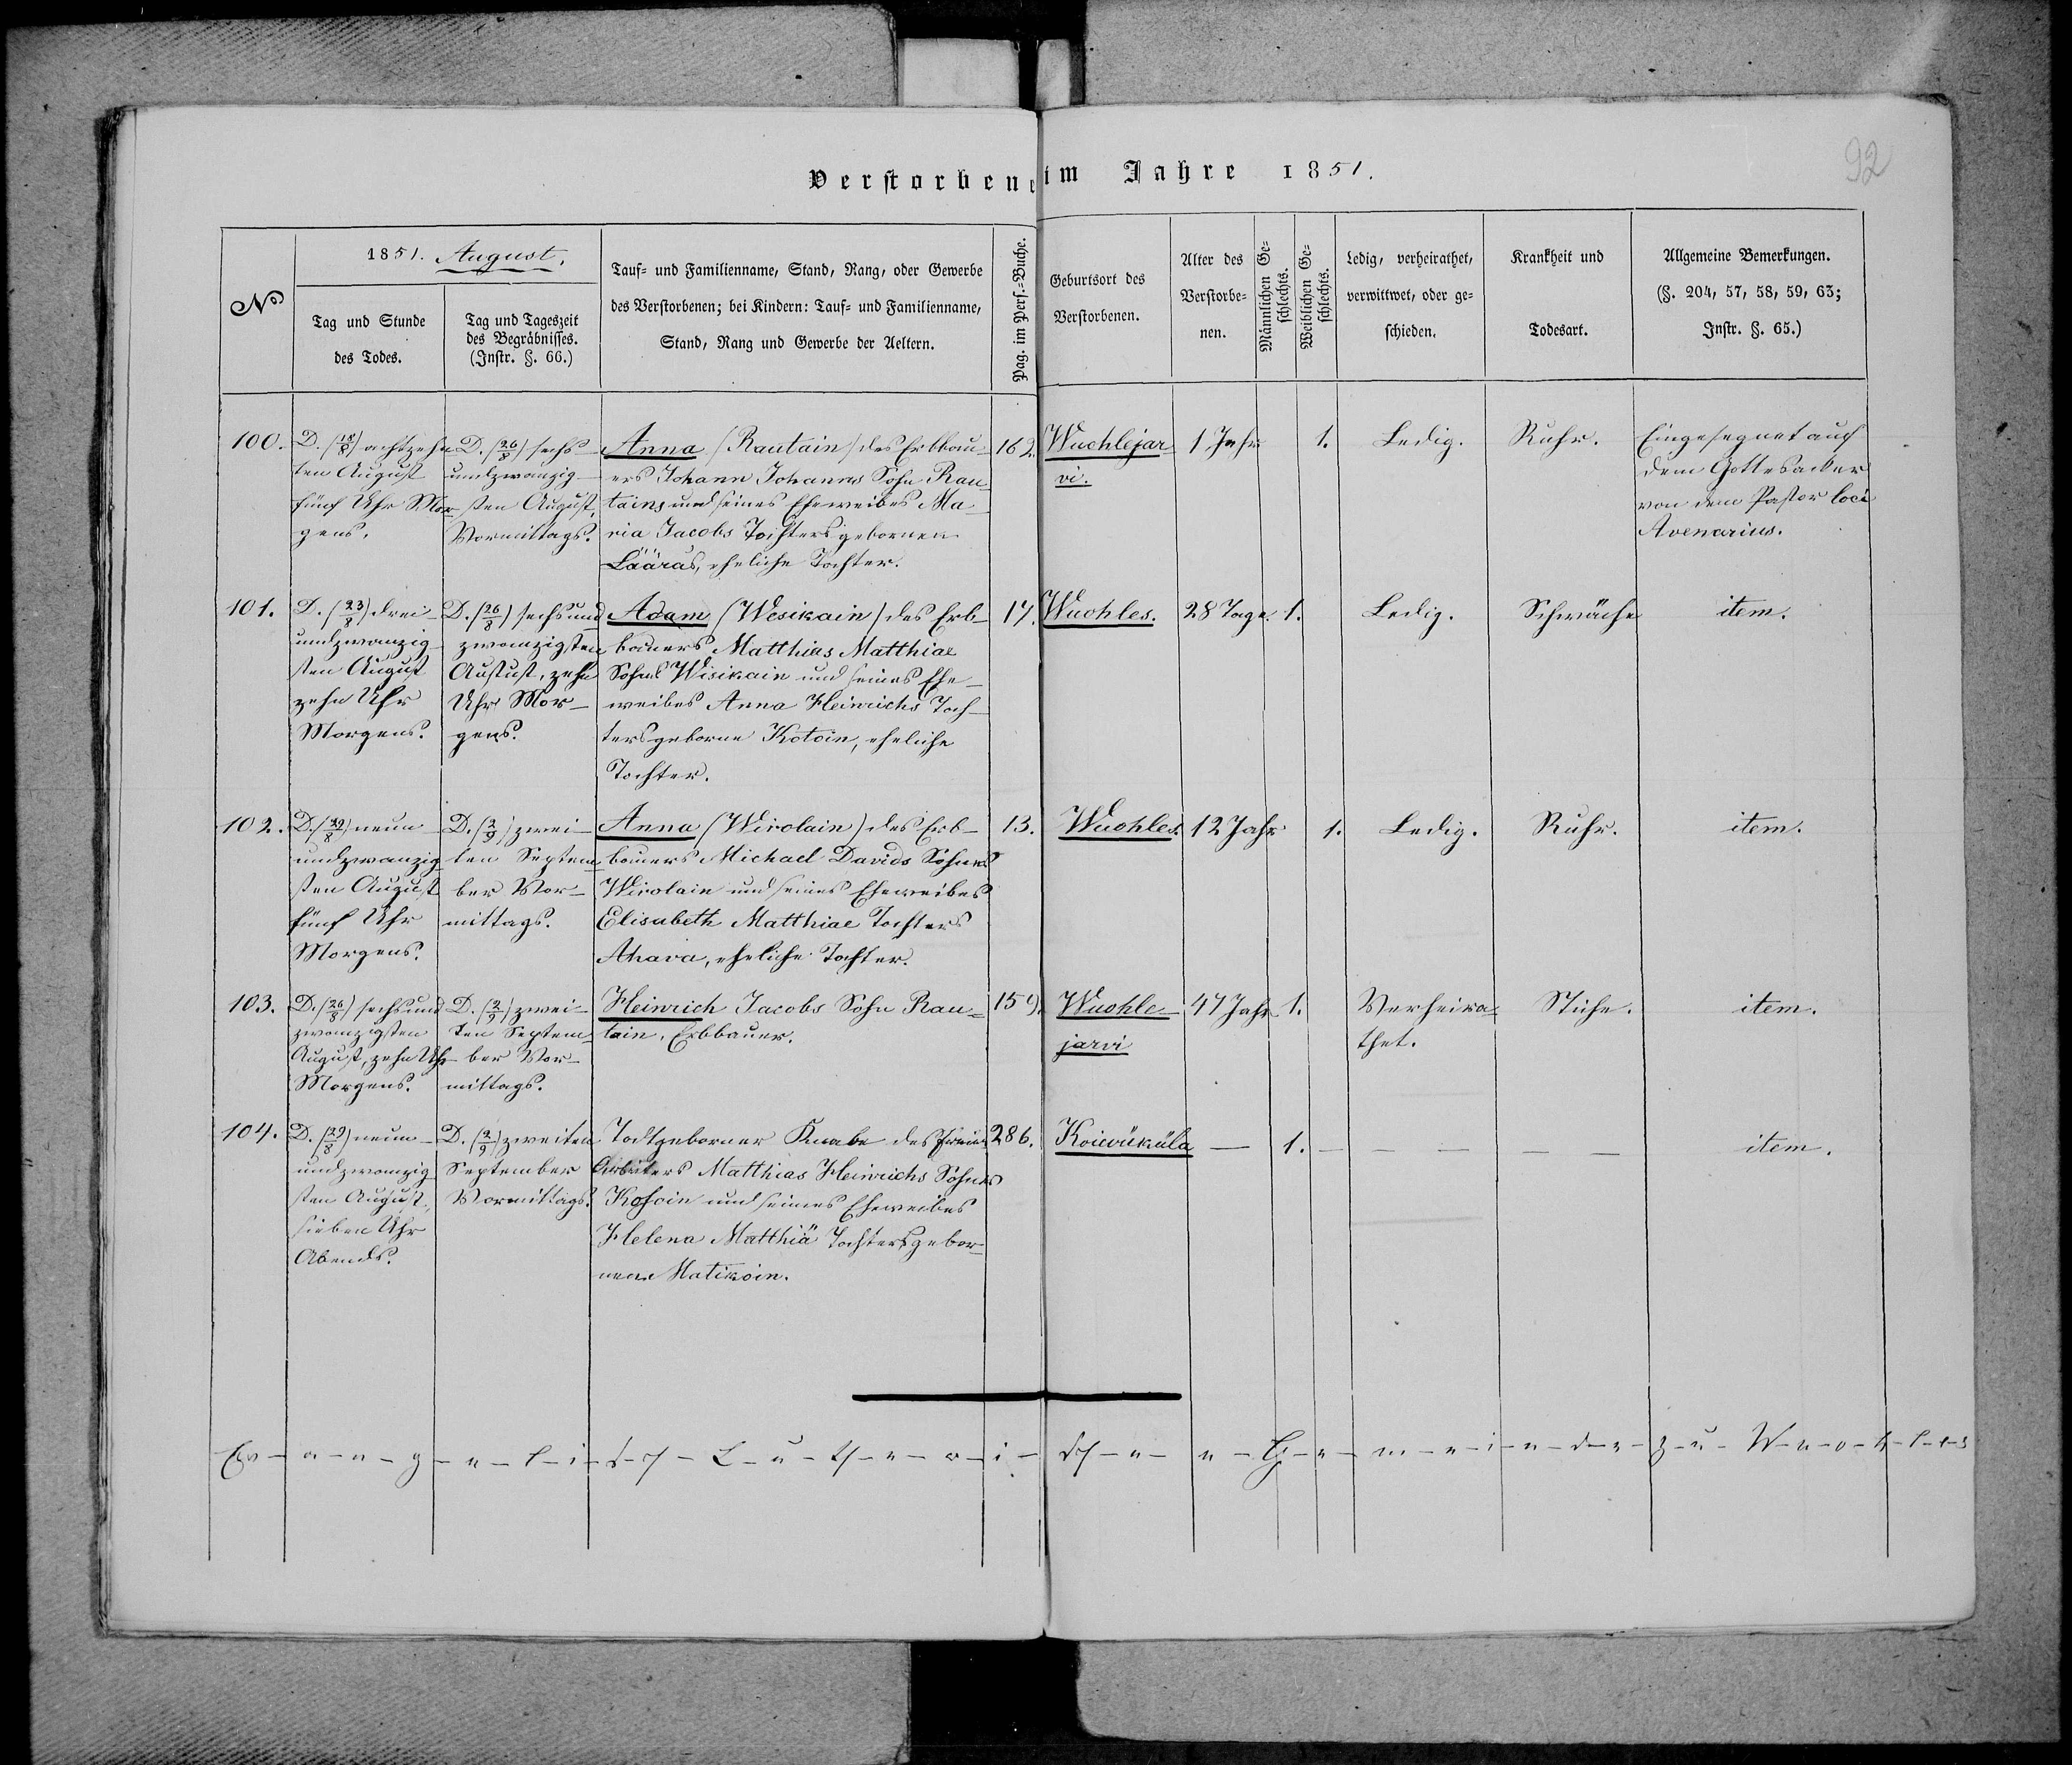 Verstorbene im Jahre 1851.
92
No
1851. August.
Tag und Stunde
des Todes.
Tag und Tageszeit
des Begräbnisses.
(Instr. §. 66.)
Tauf- und Familienname, Stand, Rang, oder Gewerbe
des Verstorbenen; bei Kindern: Tauf- und Familienname,
Stand, Rang und Gewerbe der Aeltern.
Pag. im Pers.-Buche.
Geburtsort des
Verstorbenen.
Alter des
Verstorbe-
nen.
Männlichen Ge-
schlechts.
Weiblichen Ge-
schlechts.
Ledig, verheirathet,
verwittwet, oder ge-
schieden.
Krankheit und
Todesart.
Allgemeine Bemerkungen.
(§. 204, 57, 58, 59, 63;
Instr. §. 65.)
100.
D. (18/8) achtzehn
ten August
fünf Uhr Mor
gens.
D. (26/8) sechs
undzwanzig
sten August,
Vormittags.
Anna (Rautain) des Erbbau-
ers Johann Johanns Sohn Rau-
tains und seines Eheweibes Ma-
ria Jacobs Tochters gebornen
Lääräs, eheliche Tochter.
162.
Wuohlejar-
vi.
1 Jahr
1.
Ledig.
Ruhr.
Eingesegnet auf
dem Gottesacker
von dem Pastor loci
Avenarius.
101.
D. (23/8) drei-
undzwanzig-
sten August
zehn Uhr
Morgens.
D. (26/8) sechsund
zwanzigsten
August, zehn
Uhr Mor-
gens.
Adam (Wesikain) des Erb-
bauers Matthias Matthiae
Sohns Wisikain und seines Ehe-
weibes Anna Heinrichs Toch-
ters geborne Kotoin, eheliche
Tochter.
17.
Wuohles.
28 Tage.
1.
Ledig.
Schwäche
item.
102.
D. (29/8) neun
undzwanzig-
sten August
fünf Uhr
Morgens.
D. (2/9) zwei-
ten Septem-
ber Vor-
mittags.
Anna (Wirolain) des Erb-
bauers Michael Davids Sohnes
Wirolain und seines Eheweibes
Elisabeth Matthiae Tochters
Ahava, eheliche Tochter.
13.
Wuohles.
12 Jahr
1.
Ledig.
Ruhr.
item.
103.
D. (26/8) sechsund
zwanzigsten
August, zehn Uhr
Morgens.
D. (2/9) zwei-
ten Septem-
ber Vor-
mittags.
Heinrich Jacobs Sohn Rau-
tain, Erbbauer.
159.
Wuohle-
jarvi
47 Jahr
1.
Verheira-
thet.
Stiche.
item.
104.
D. (29/8) neun-
undzwanzig-
sten August,
sieben Uhr
Abends.
D. (2/9) zweiten
September
Vormittags.
Todtgeborner Knabe des
Arbeiters Matthias Heinrichs Sohnes
Kohoin und seines Eheweibes
Helena Matthiä Tochters gebor-
nene Matikoin.
286.
Koiwüküla
—
1.
— — — — —
item.
Ev-a-n-g-e-l-i-s-ch-L-u-th-e-r-i-sch-e-n-G-e-m-e-i-n-d-e-z-u-W-u-o-h-l-e-s